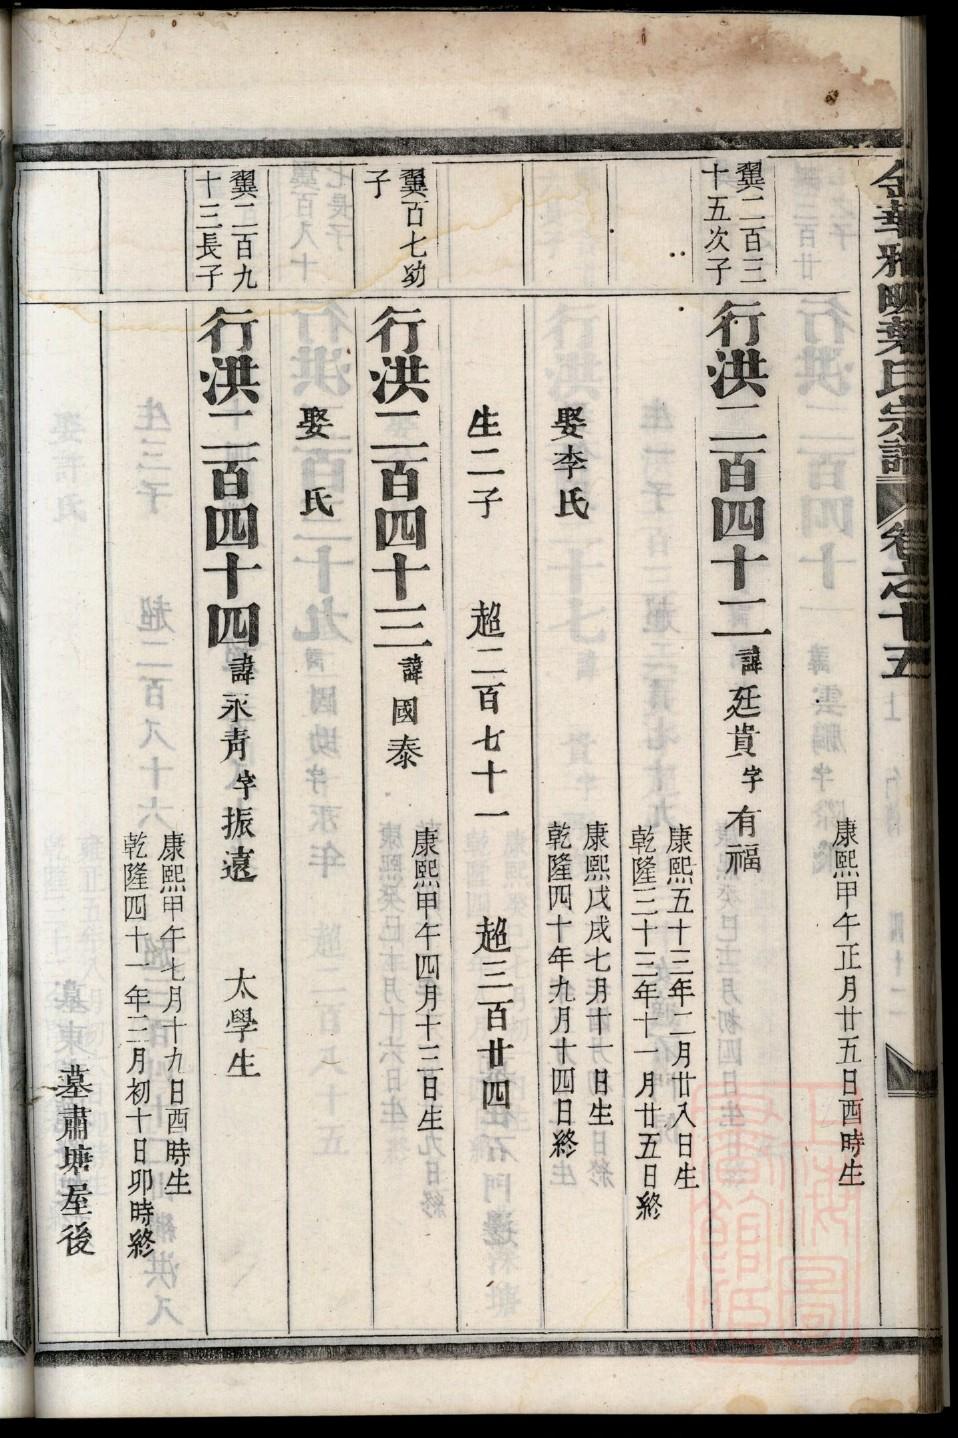 金華雅畈葉氏宗譜 卷之十五
康熙甲午正月廿五日酉時生
翼二百三十五次子
行洪二百四十二 諱廷貴 字有福
康熙五十三年二月廿八日生
乾隆三十三年十一月廿五日終
娶李氏
康熙戊戌七月廿一日生
乾隆四十年九月十四日終
生二子 超二百七十一 超三百廿四
翼百七幼子
行洪二百四十三 諱國泰
康熙甲午四月十三日生
娶氏
翼二百九十三長子
行洪二百四十四 諱永青 字振遠 太學生
康熙甲午七月十九日酉時生
乾隆四十一年三月初十日卯時終
墓肅塘屋後